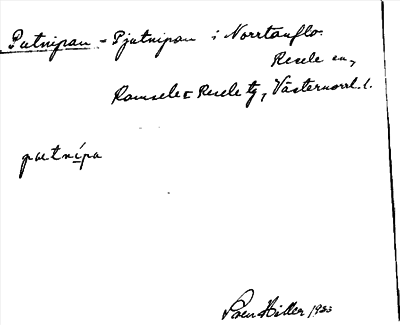 Putnipan - Pjutnipan i Norrtanflo
Resele sn,
Ramsele o Resele tg, Västernorrl. l.
putnípa
Sven Hiller 1933